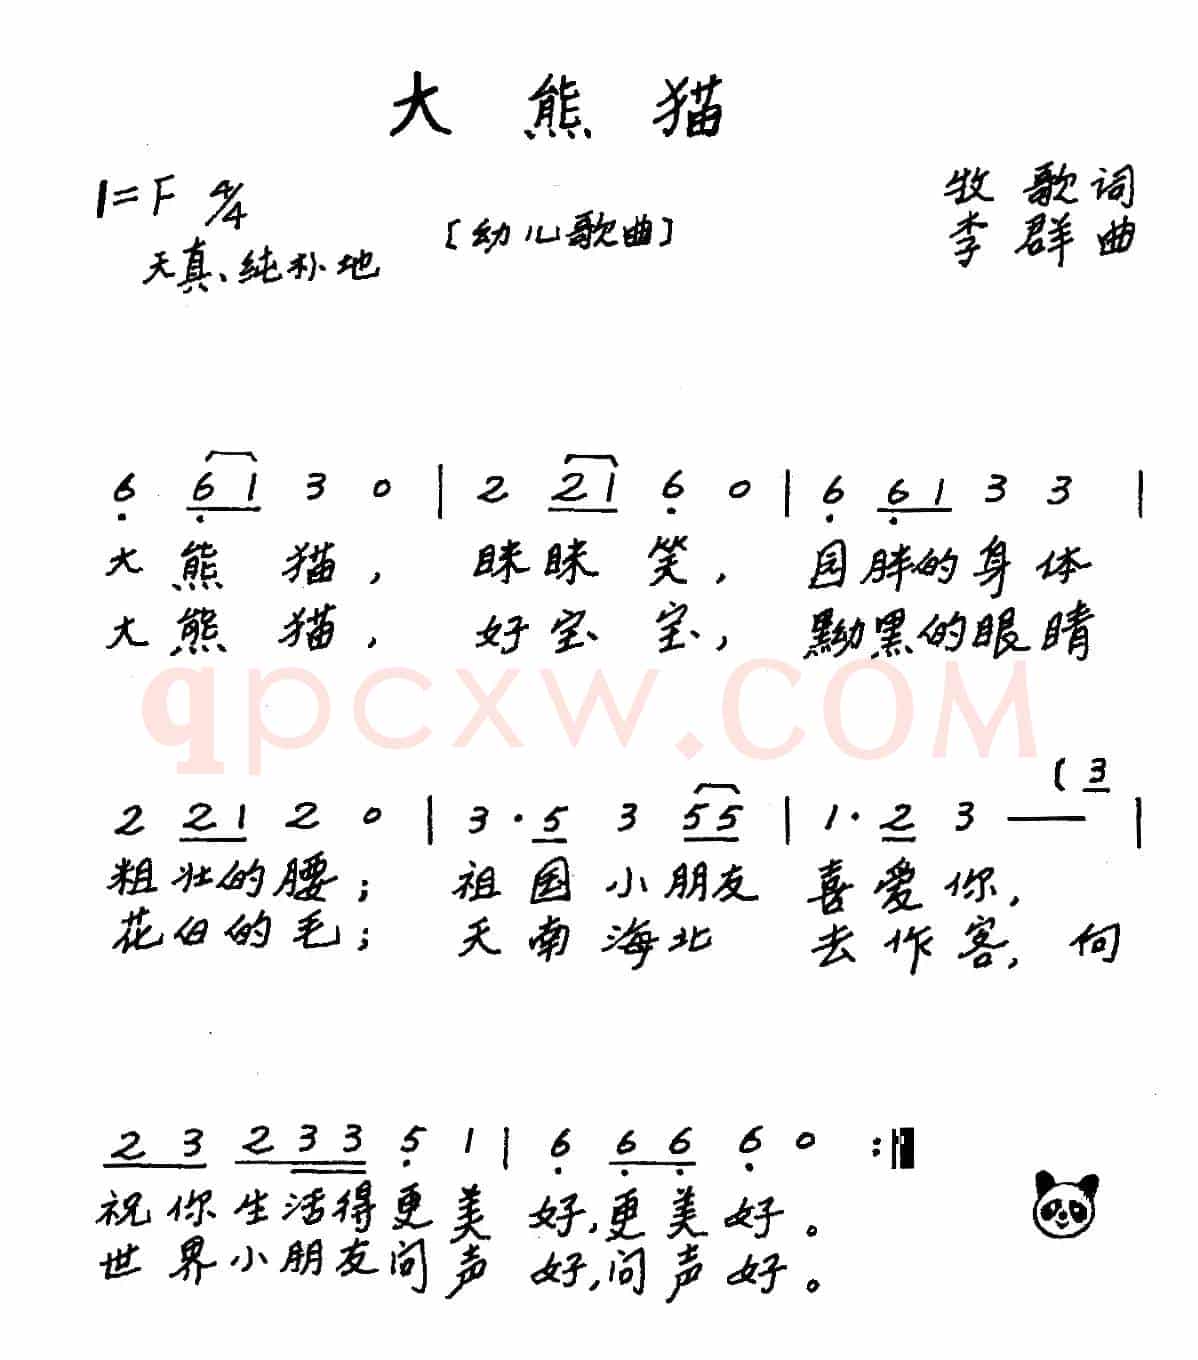 大熊猫
1=F 4/4
牧歌词
[幼儿歌曲]
李群曲
天真、纯朴地
6 6 1 3 0 | 2 2 1 6 0 | 6 6 1 3 3 |
大熊猫，眯眯笑，园胖的身体
大熊猫，好宝宝，黝黑的眼睛
qpcxw.COM
(3
2 2 1 2 0 | 3·5 3 5 5 | 1·2 3 — |
粗壮的腰；祖国小朋友喜爱你，
花白的毛；天南海北去作客，向
2 3 2 3 3 5 1 | 6 6 6 6 0 :‖
祝你生活得更美好，更美好。
世界小朋友问声好，问声好。